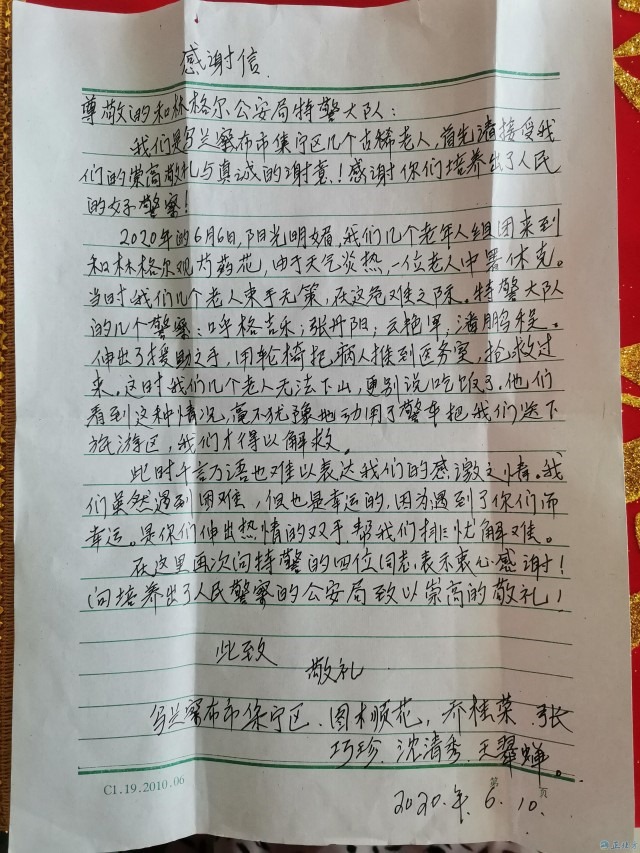 感谢信
尊敬的和林格尔公安局特警大队：
我们是乌兰察布市集宁区几个古稀老人，首先请接受我
们的崇高敬礼与真诚的谢意！感谢你们培养出了人民
的好警察！
2020年的6月6日，阳光明媚，我们几个老年人组团来到
和林格尔观芍药花，由于天气炎热，一位老人中署休克。
当时我们几个老人束手无策，在这危难之际。特警大队
的几个警察：呼格吉乐；张丹阳；云艳军；潘鹏程。
伸出了援助之手，用轮椅把病人推到医务室，抢救过
来。这时我们几个老人无法下山，更别说吃饭了。他们
看到这种情况，毫不犹豫地动用了警车把我们送下
旅游区，我们才得以解救。
此时千言万语也难以表达我们的感激之情。我
们虽然遇到困难，但也是幸运的，因为遇到了你们而
幸运。是你们伸出热情的双手帮我们排忧解难。
在这里再次向特警的四位同志表示衷心感谢！
向培养出了人民警察的公安局致以崇高的敬礼！
此致
敬礼
乌兰察布市集宁区、图木顺花，乔桂荣、张
巧珍、沈清秀、王翠婵。
C1.19.2010.06
第 页
2020.年.6.10.